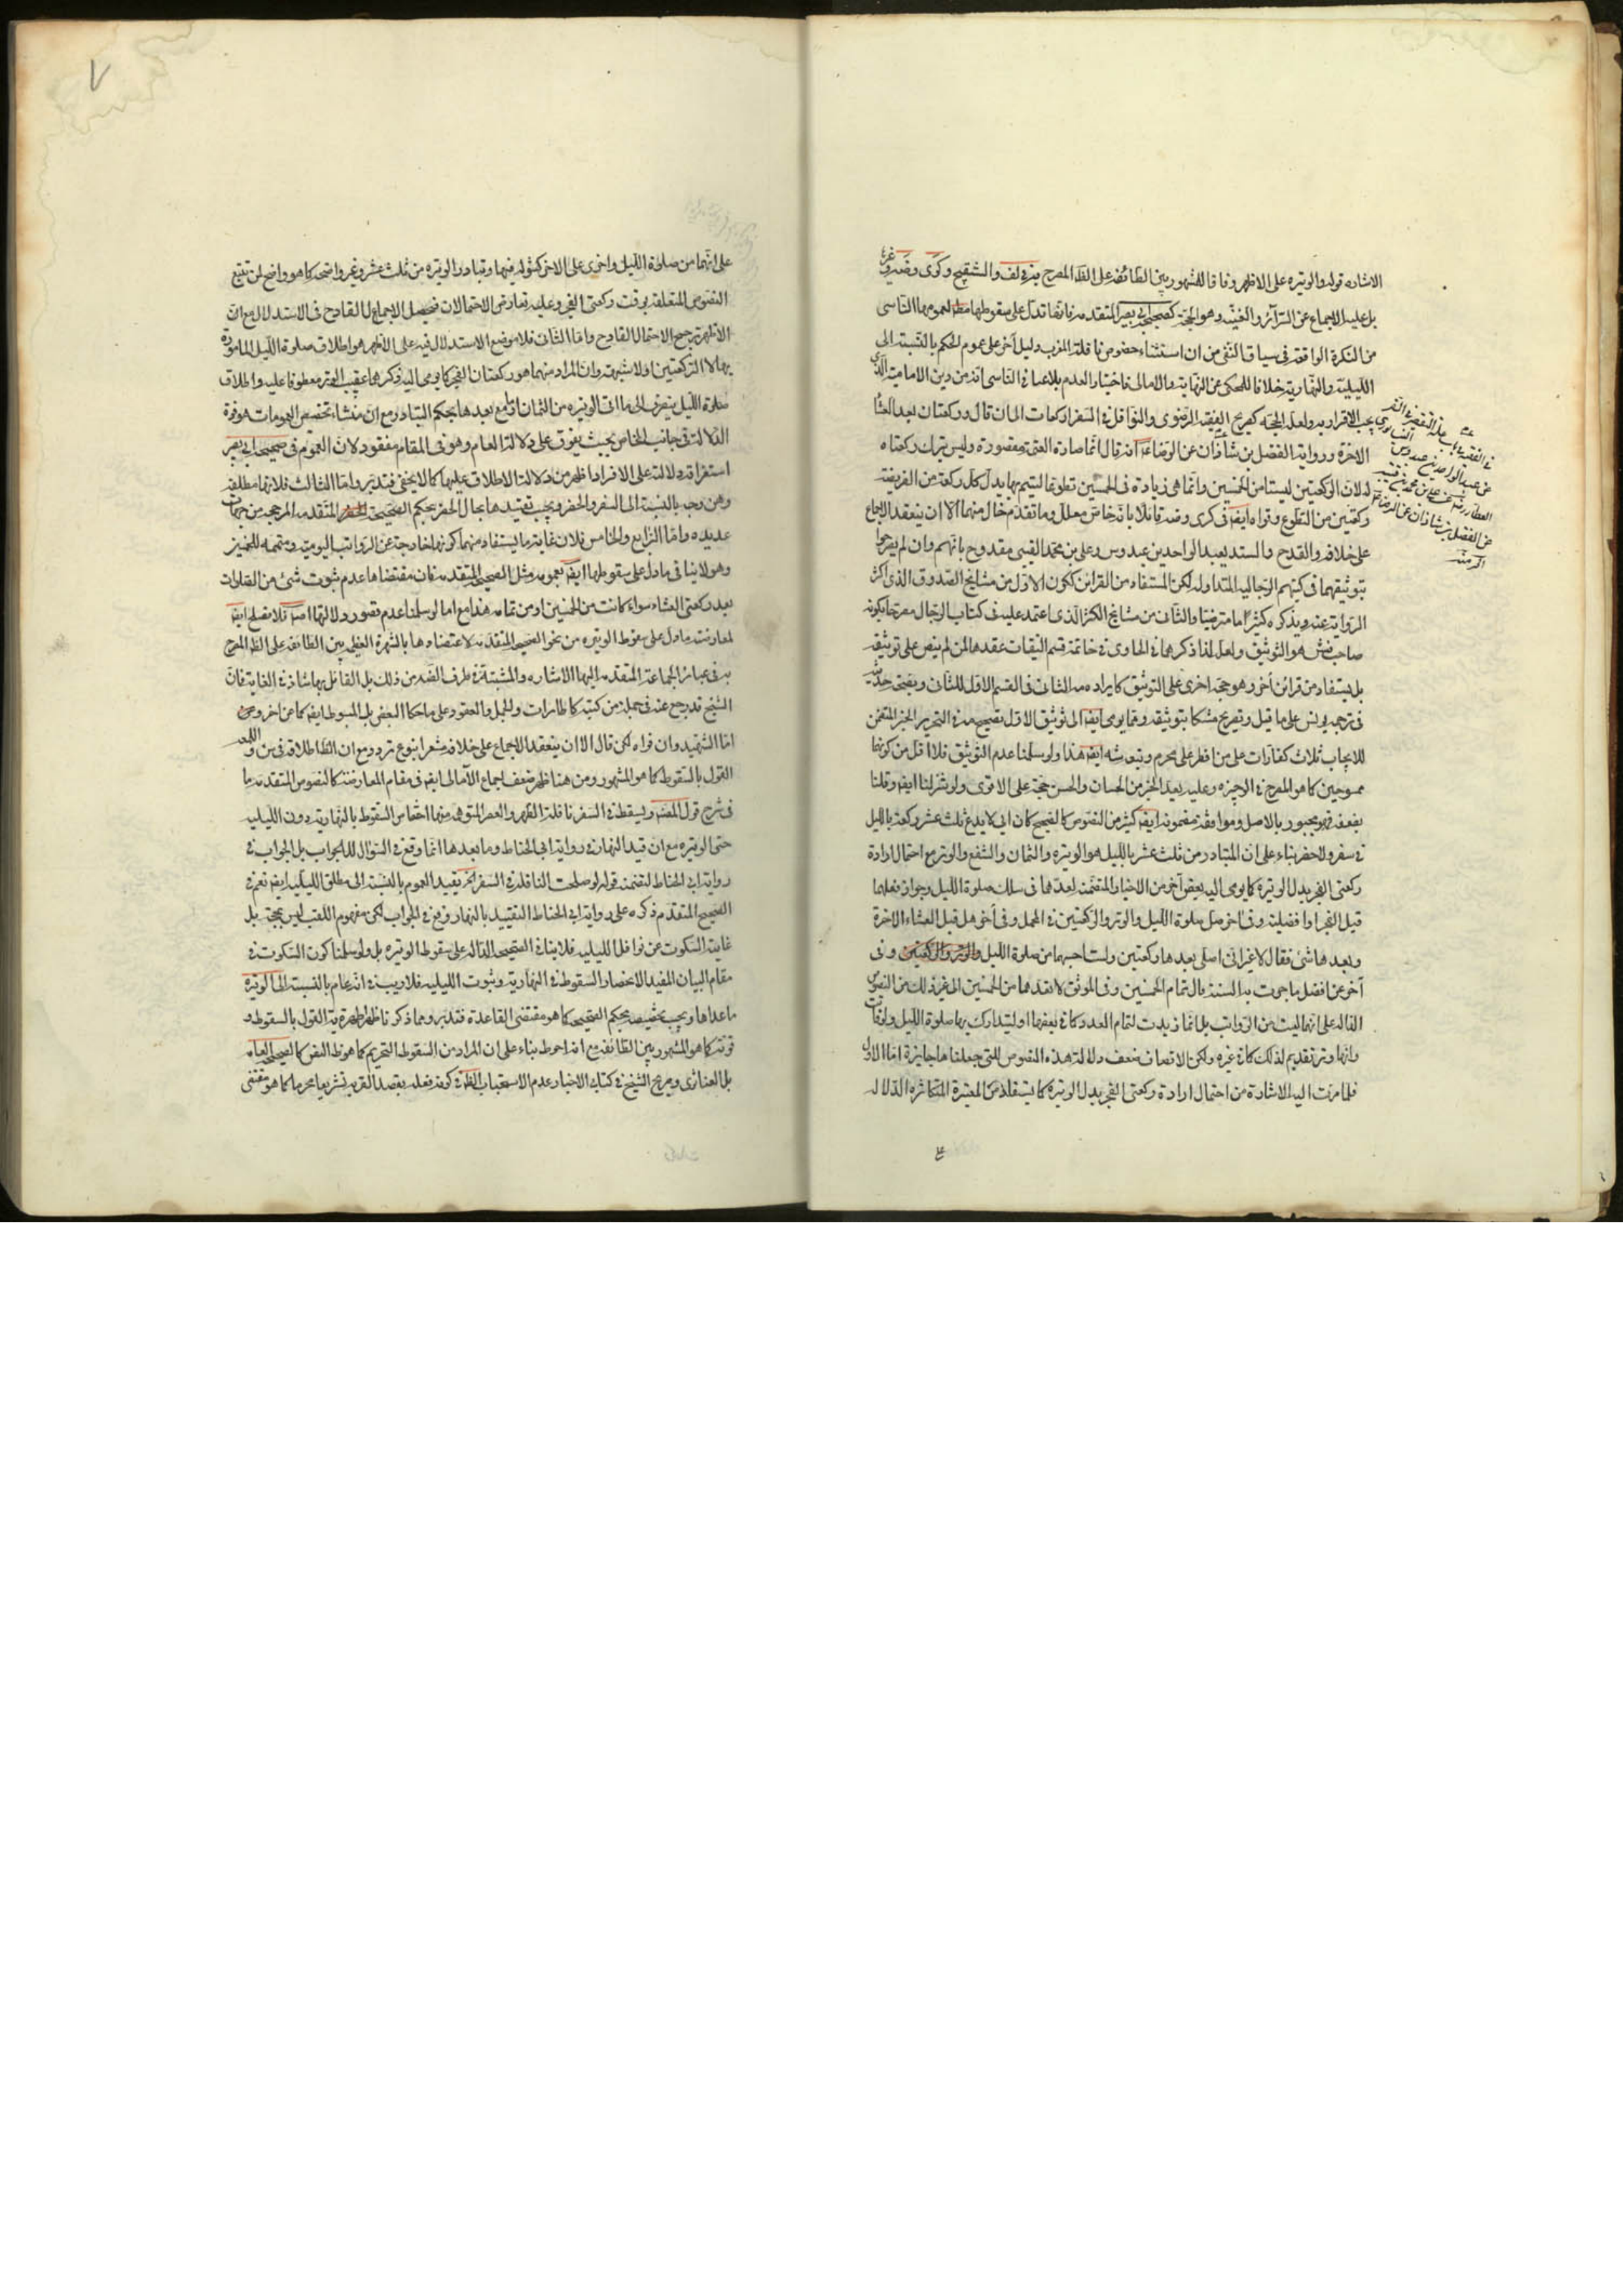 الاشاره قوله والوتيره على الاظهر وفاقا للمشهور بين الطائفة على الظ المصرح به في لف والتنقيح وكرى وضه وغيرها
بل عليه الاجماع عن السرائر والغنيه وهو الحجة كصحيحة ابي بصير المتقدمه فانها تدل على سقوطها مط لعمومها الناشى
من النكرة الواقعة في سياق النفى من ان استثناء خصوص نافلة المغرب دليل آخر على عموم الحكم بالنسبة الى
الليلية والنهارية خلافا للمحكى عن النهاية والامالى فاختيارا العدم بلا عما في الثاسى انه من دين الامامية الذى
يجب الاقرار به ولعل الحجه كصريح الفقه الرضوى والنوافل في السفر اربع ركعات الى ان قال وركعتان بعد العشاء
الاخرة ورواية الفضل بن شاذان عن الرضاء انه قال انما صارة العتمة مقصورة وليس يترك ركعتاه
لان الركعتين ليستا من الخمسين وانما هى زيادة فى الخمسين تطوعا ليتم بهما بدل كل ركعة من الفريضة
ركعتين من التطوع وقواه ايضا في كرى وضه قائلا بانه خاص معلل وما تقدم خال منهما الا ان ينعقد الاجماع
على خلافه والقدح والسند بعبد الواحد بن عبدوس وعلى بن محمد القتيبى مقدوح بانهم وان لم يصرحوا
بتوثيقهما فى كتبهم الرجاليه المتداوله لكن المستفاد من القرائن ككون الاول من مشايخ الصدوق الذى اكثر
الرواية عنه ويذكره كثيرا ما مترضيا والثانى من مشايخ الكشى الذى اعتمد عليه فى كتاب الرجال مصرحا بكونه
صاحب فش هو التوثيق ولعل لذا ذكرهما في الحاوى في خاتمة قسم الثقات عقدها لمن لم ينص على توثيقه
بل يستفاد من قرائن أخر وهو حجه اخرى على التوثيق كايراد مه الثانى فى القسم الاول للثانى وبصحة حديثه
فى ترجمة يونس على ما قيل وتصريح مشكا بتوثيقه ومما يومى ايضا الى توثيق الاول تصحيحه في التحرير الخبر المتضمن
للايجاب ثلاث كفارات على من افطر على محرم وتبعه شه ايضا هذا ولو سلمنا عدم التوثيق فلا اقل من كونهما
ممدوحين كما هو المصرح في الوجيزه وعليه يعد الخبر من الحسان والحسن حجة على الاقوى ولو تنزلنا ايضا وقلنا
بضعفه فهو مجبور بالاصل وموافقة مضمونه ايضا كثير من النصوص كالصحيح كان ابى لا يدع ثلث عشر ركعة بالليل
في سفر ولا حضر بناء على ان المتبادر من ثلث عشر بالليل هو الوتيره والثمان والشفع والوتر مع احتمال ارادة
ركعتى الفجر بدل الوتيرة كما يومى اليه بعض آخر من الاخبار المتضمنه لعدهما فى سلك صلوة الليل وجواز فعلهما
قبل الفجر او افضليته وفى آخر صل صلوة الليل والوتر والركعتين في المحمل وفى آخر هل قبل العشاء الآخرة
وبعدها شئ فقال لا غير انى اصلى بعدها ركعتين ولست احسبهما من صلوة الليل والوتر والركعتين وفى
آخر عن افضل ما جرت به السنة قال تمام الخمسين وفى الموثق لا تعدهما من الخمسين الى غير ذلك من النصوص
الداله على انها ليست من الرواتب بل انما زيدت لتمام العدد كما في بعضها او ليتدارك بها صلوة الليل ولو فات
وانها وتر تقديم لذلك كما في غيره ولكن الانصاف ضعف دلالة هذه النصوص للتى جعلناها جابرة اما الاول
فلما مرت اليه الاشارة من احتمال ارادة ركعتى الفجر بدل الوتيرة كما يستفاد من المعتبرة المتكاثرة الدلاله
فى الفقيه في باب علة التقصير في السفر
عن عبد الواحد بن عبدوس النيسابورى
العطار رض عن على بن محمد بن قتيبه
عن الفضل بن شاذان عن الرضا
الى منه
٧
على انهما من صلوة الليل واخرى على الاخر كمثوله فيهما وتبادر الوتيره من ثلث عشر وغير واضحه كما هو واضح لمن تتبع
النصوص المتعلقة بوقت ركعتى الفجر وعليه تعارض الاحتمالان فيحصل الاجمال القادح فى الاستدلال مع ان
الاظهر ترجيح الاحتمال القادح واما الثانى فلا موضع الاستدلال فيه على الاظهر هو اطلاق صلوة الليل المامورة
بهما لا الركعتين اولا شبهة وان المراد منهما هو ركعتان الفجر كما يومى اليه ذكرهما عقيب الوتر معطوفا عليه واطلاق
صلوة الليل ينصرف الى ما انى الوتيره من الثمان او مع بعدها بحكم التبادر مع ان منشاء تخصيص العمومات هو قوة
الدلالة فى جانب الخاص بحيث يفوق على دلالة العام وهو فى المقام مفقود لان العموم فى صحيحة ابى بصير
استغراقه ودلالته على الافراد اظهر من دلالة الاطلاق عليها كما لا يخفى فتدبر واما الثالث فلانها مطلقه
وهن وجه بالنسبة الى السفر والحضر ويجب تقييدها بحال الحضر بحكم الصحيحة المتقدمه المرجحه من جهات
عديده واما الرابع والخامس فلان غاية ما يستفاد منهما كونها خارجة عن الرواتب اليومية ومتممه للخمسين
وهو لا ينافى ما دل على سقوطها ايضا بعمومه مثل الصحيحه المتقدمه فان مقتضاها عدم ثبوت شئ من الصلوات
بعد ركعتى العشاء سواء كانت من الخمسين او من تمامه هذا مع اما لو سلمنا عدم قصور دلالتها اصلا فلا تصلح ايضا
لمعارضة ما دل على سقوط الوتيره من نحو الصحيحه المتقدمه لاعتضادها بالشهرة العظيمه بين الطائفة على الظ المصرح
به فى عبائر الجماعة المتقدمه اليها الاشاره والمثبتة في طرف الضد من ذلك بل القائل بها شاذ في الغاية فان
الشيخ قد رجع عنه فى جملة من كتبه كالحائريات والجمل والعقود على ما حكاه البعض بل المبسوط ايضا كما عن اخر وعن
اما الشهيد وان قواه لكن قال الا ان ينعقد الاجماع على خلافه مشعرا بنوع تردد مع ان الظ اطلاقه فى س واللمعه
القول بالسقوط كما هو المشهور ومن هنا ظهر ضعف اجماع الآمالى ايضا فى مقام المعارضة كالنصوص المتقدمه ما
فى شرح قول المصنف ويسقط فى السفر نافلة الظهر والعصر المتوهم منهما اختصاص السقوط بالنهاريه دون الليليه
حتى الوتيره مع ان قيد النهار فى رواية ابى الحناط وما بعدها انما وقع في السؤال للا الجواب بل الجواب في
رواية ابى الحناط لتضمنه قوله لو صلحت النافلة في السفر اتم يفيد العموم بالنسبة الى مطلق الليليه ايضا نعم في
الصحيح المتقدم ذكره على رواية ابى الحناط التقييد بالنهار وقع في الجواب لكن مفهوم اللقب ليس بحجة بل
غايته السكوت عن نوافل الليليه فلا ينافى الصحيحه الدالة على سقوط الوتيره بل ولو سلمنا كون السكوت في
مقام البيان المفيد الانحصار السقوط في النهارية وثبوت الليليه فلا ريب في انه عام بالنسبة الى الوتيره
ما عداها ويجب تخصيصه بحكم الصحيحه كما هو مقتضى القاعدة فتدبر ومما ذكرنا ظهر اظهرية القول بالسقوط و
قوته كما هو المشهور بين الطائفة مع انه احوط بناء على ان المراد من السقوط التحريم كما هو ظ النصوص كالصحيحه العامه
بل الغنائزى وصريح الشيخ في كتاب الاخبار عدم الاستحباب الظ في كونه فعله بقصد القربه تشريعا محرما كما هو مقتضى